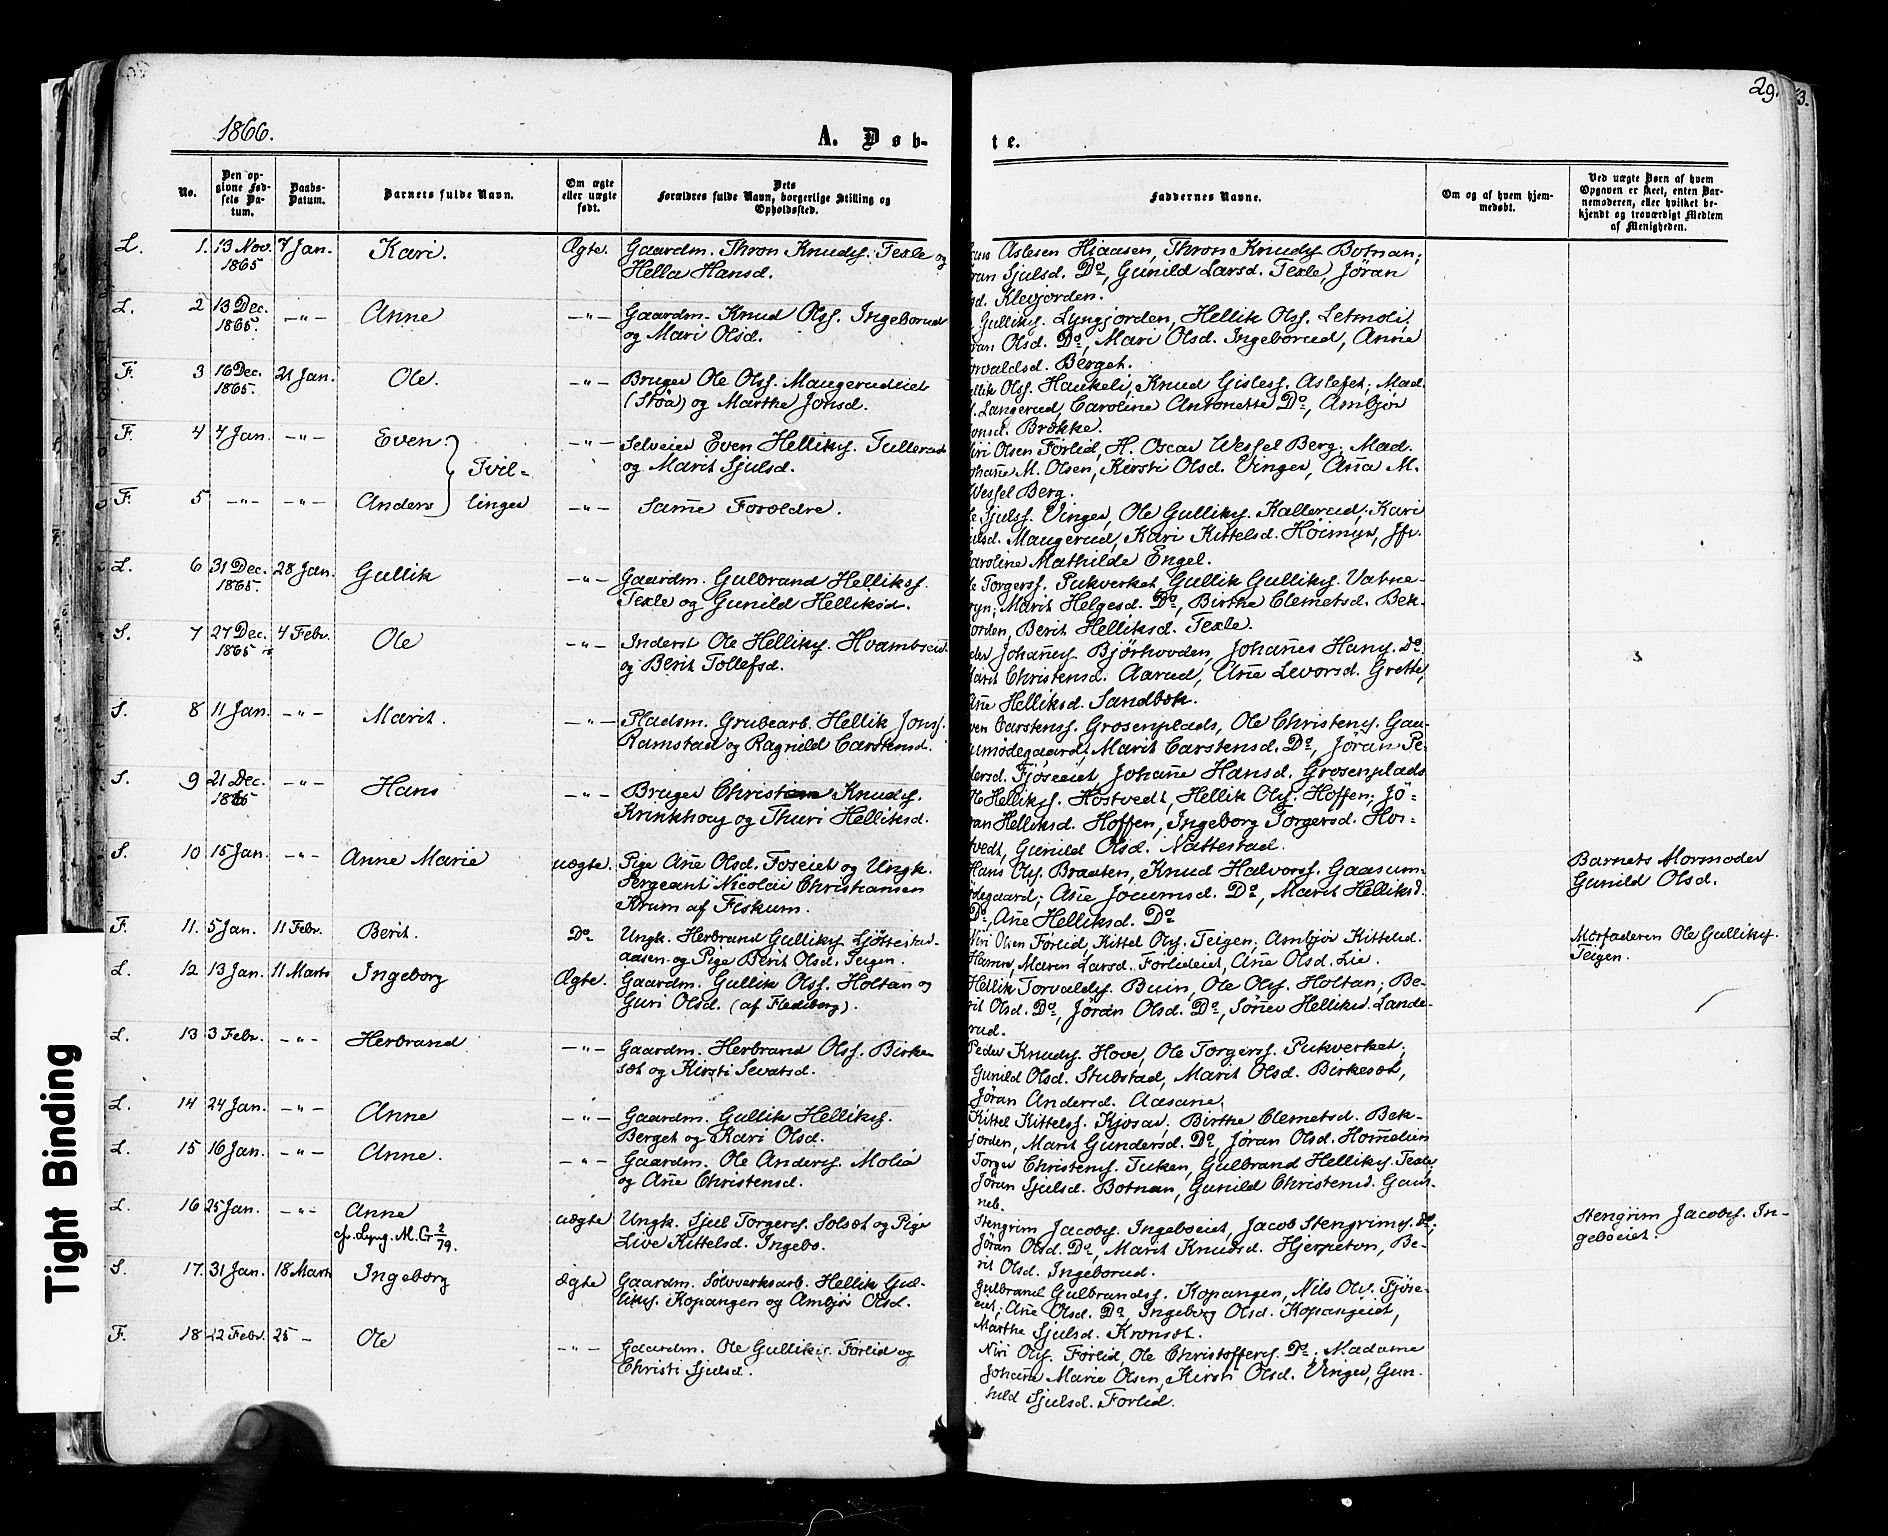 29.
1866.
A. Døb-
te.
No.
Den op-
givne Fød-
sels Da-
tum.
Daabs-
Datum.
Barnets fulde Navn.
Om ægte
eller uægte
født.
Dets
Forældres fulde Navn, borgerlige Stilling og
Opholdssted.
Faddernes Navne.
Om og af hvem hjem-
medøbt.
Ved uægte Børn af hvem
Opgaven er skeet, enten Bar-
nemoderen, eller hvilket be-
kjendt og troværdigt Medlem
af Menigheden.
L. 1. 13 Nov. 7 Jan. Kari. Ægte. Gaardm. Thron Knuds. Texle og
1865 Hella Hansd.
Aslesen Hiaasen, Thron Knuds. Botnan;
Sjulsd. Do, Gunild Larsd. Texle, Jøran
Klevjorden.
L. 2 13 Dec. -"- Anne -"- Gaardm. Knud Olss. Ingeborud
1865. og Mari Olsd.
Gulliks. Lyngjorden, Hellik Olss. Letmoli,
Olsd. Do, Mari Olsd. Ingeborud, Anne
Berget.
F. 3 16 Dec. 21 Jan. Ole. -"- Bruger Ole Olss. Maugerudeiet
1865. (Støa) og Marthe Jonsd.
Olss. Haukeli, Knud Gisless. Aslefet; Mad.
Langerud, Caroline Antonette Do, Ambjør
Brække.
F. 4 4 Jan. -"- Even -"- Selveier Even Helliks. Tullerud
Tvil- og Marit Sjulsd.
Olsen Førlid, H. Oscar Wessel Berg; Mad.
M. Olsen, Kirsti Olsd. Vinger, Ana M.
Wessel Berg.
F. 5 -"- -"- Anders linger -"- Same Forældre.
Sjulss. Vinger, Ole Gulliks. Kallerud; Kari
Maugerud, Kari Kittelsd. Høimyr, Jfr.
Caroline Mathilde Engel.
L. 6 31 Dec. 28 Jan. Gullik -"- Gaardm. Gulbrand Helliks.
1865. Texle og Gunild Helliksd.
Torgerss. Pukverket, Gullik Gulliks. Vatne-
bryn; Marit Helgesd. Do, Birthe Clemetsd. Bek-
jorden, Berit Helliksd. Texle.
S. 7 27 Dec. 4 Febr. Ole -"- Inderst Ole Helliks. Hvambseid
1865 og Berit Tollefsd.
Johanes. Bjørhovden, Johanes Hans. Do
Marit Christensd. Aarud, Ane Levorsd. Grette,
Ane Helliksd. Sandbæk.
S. 8 11 Jan. -"- Marit. -"- Pladsm. Grubearb. Hellik Jons.
Ramstad og Ragnild Carstensd.
Carstenss. Grosenplads, Ole Christens. Gaa-
sumødegaard; Marit Carstensd. Do, Jøran Pe-
dersd. Fjøseiet, Johane Hansd. Grosenplads
S. 9 21 Dec. -"- Hans -"- Bruger Christian Knuds.
1865 Krinkhoug og Thuri Helliksd.
Helliks. Hostvedt, Hellik Ols. Hoffen; Jø-
ran Helliksd. Hoffen, Ingeborg Torgersd. Hos-
tvedt, Gunild Olsd. Nattestad.
S. 10 15 Jan. -"- Anne Marie uægte. Pige Ane Olsd. Foseiet og Ungk.
Sergeant Nicolai Christiansen
Krum af Fiskum.
Hans Ols. Braaten, Knud Halvors. Gaasum-
ødegaard; Ane Joumsd. Do, Marit Helliksd.
Do, Ane Helliksd. Do
Barnets Mormoder
Gunild Olsd.
F. 11. 5 Jan. 11 Febr. Berit. Do Ungk. Herbrand Gulliks. Ljøttestad-
aasen og Pige Berit Olsd. Teigen.
Niri Olsen Førlid, Kittel Ols. Teigen; Ambjør Kittelsd.
Maren Larsd. Førlideiet, Ane Olsd. Lie.
Morfaderen Ole Gulliks.
Teigen.
L. 12 13 Jan. 11 Marts Ingeborg Ægte. Gaardm. Gullik Olss. Holtan og
Guri Olsd. (af Flesberg).
Hellik Torvalds. Buin, Ole Ols. Holtan; Be-
rit Olsd. Do, Jøran Olsd. Do, Sønev Helliksd. Lande-
rud.
L. 13 3 Febr. -"- Herbrand -"- Gaardm. Herbrand Olss. Birke-
sæt og Kirsti Sevatsd.
Peder Knuds. Hove, Ole Torgerss. Pukverket;
Gunild Olsd. Stubstad, Marit Olsd. Birkesæt,
Jøran Andersd. Aasane.
L. 14 24 Jan. -"- Anne -"- Gaardm. Gullik Helliks.
Berget og Kari Olsd.
Kittel Kittelss. Kjosar, Birthe Clemetsd. Bek-
jorden, Marit Gundersd. Do, Jøran Olsd. Homelien
L. 15 16 Jan. -"- Anne. -"- Gaardm. Ole Anders. Molia
og Ane Christensd.
Torger Christens. Tuken, Gulbrand Helliks. Texle,
Jøran Sjulsd. Botnan, Gunild Christensd.
L. 16 25 Jan. -"- Anne uægte Ungk. Sjul Torgers. Solsæt og Pige
cfr. Lyng. M. G 2/79. Live Kittelsd. Ingebo.
Stengrim Jacobs. Ingeboeiet, Jacob Stengrims. Do;
Jøran Olsd. Do, Marit Knudsd. Hjerpetøn, Be-
rit Olsd. Ingeborud.
Stengrim Jacobs. In-
geboeiet.
S. 17. 31 Jan. 18 Marts Ingeborg ægte Gaardm. Sølvverksarb. Hellik Gul-
liks. Kopangen og Ambjør Olsd.
Gulbrand Gulbrandss. Kopangen, Nils Ols. Fjøse-
eiet; Ane Olsd. Do, Ingeborg Olsd. Kopangeiet,
Marthe Sjulsd. Kronsæt.
F. 18 22 Febr. 25 - Ole -"- Gaardm. Ole Gulliks. Førlid og
Christi Sjulsd.
Niri Ols. Førlid, Ole Christoffers. Do; Madame
Johane Marie Olsen, Kirsti Olsd. Vinger, Gun-
hild Sjulsd. Førlid.
Tight Binding